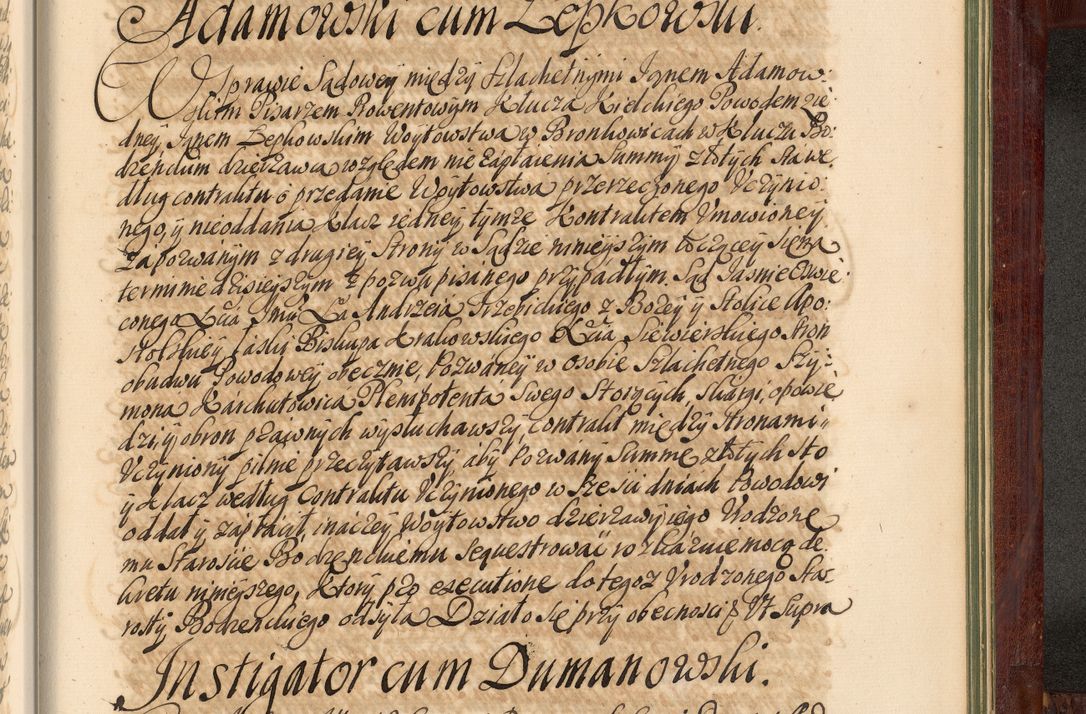 Adamowski cum Zepkowski.
W Sprawie Sądowey między Szlachetnymi Janem Adamow:
skim Pisarzem Prowentowym Klucza Kieleckiego Powodem z ie:
dney, Janem Zepkowskim Woytowstwa w Bronkowicach w Kluczu Bo:
dzenckim dzierżawcą względem nie zapłacenia Summy złotych Sta we:
dług contraktu o przedanie Woytowstwa przerzeczonego Uczynio:
nego, y nieoddania Klacz iedney tymże Kontraktem Umowioney
Zapozwanym z drugiey Strony w Sądzie ninieyszym toczącey się na
terminie dzisieyszym z pozwu pisanego przypadłym. Sąd Jaśnie Oświe:
conego Xcia Jmci Xa Andrzeia Trzebickiego z Bożey y Stolice Apo:
stolskiey łaski Biskupa Krakowskiego Xcia Siewierskiego Stron
obudwu Powodowey obecznie, Pozwaney w osobie Szlachetnego Szy:
mona Karchutowica Plenipotenta Swego Stoiących, skargi, opowie
dzi, y obron prawnych wysłuchawszy, Contrakt między Stronami
Uczyniony pilnie przeczytawszy, aby Pozwany Summę złotych Sto
y Klacz według Contraktu Uczynionego w Sześci dniach Powodowi
oddał y zapłacił, inaczey Woytowstwo dzierżawy iego Urodzone
mu Staroście Bodzenckiemu sequestrować rozkazuie mocą de:
kretu ninieyszego, Ktory pro executione do tegoż Urodzonego Sta:
rosty Bodzenckiego odsyła Działo się przy obecności & Vt Supra
Instigator cum Dumanowski.